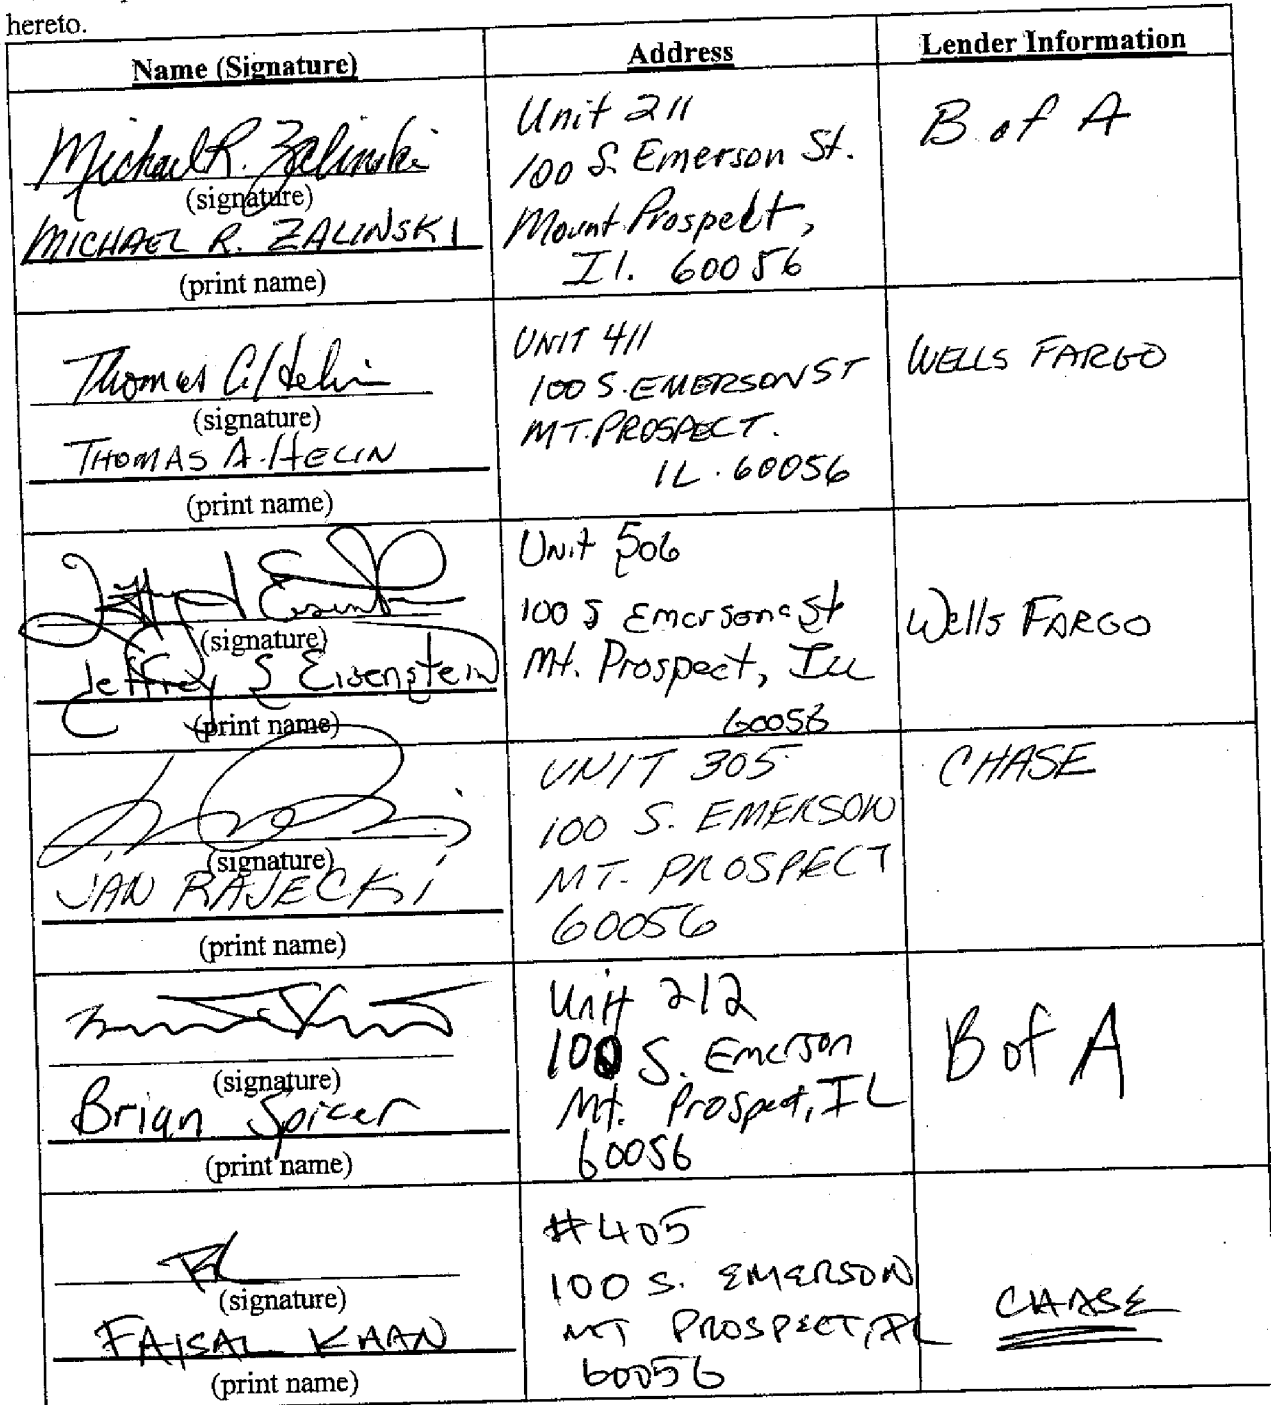 hereto.
Name (Signature)
Address
Lender Information
Michael R. Zalinski
(signature)
MICHAEL R. ZALINSKI
(print name)
Unit 211
100 S. Emerson St.
Mount Prospect,
Il. 60056
B of A
Thomas A Helin
(signature)
THOMAS A. HELIN
(print name)
UNIT 411
100 S. EMERSON ST
MT. PROSPECT.
IL. 60056
WELLS FARGO
(signature)
Jeffrey S Eisenstein
(print name)
Unit 506
100 S Emerson St
Mt. Prospect, Ill
60056
Wells FARGO
(signature)
JAN RAJECKI
(print name)
UNIT 305
100 S. EMERSON
MT. PROSPECT
60056
CHASE
(signature)
Brian Spicer
(print name)
Unit 212
100 S. Emerson
Mt. Prospect, IL
60056
B of A
(signature)
FAISAL KHAN
(print name)
#405
100 S. EMERSON
MT PROSPECT, IL
60056
CHASE